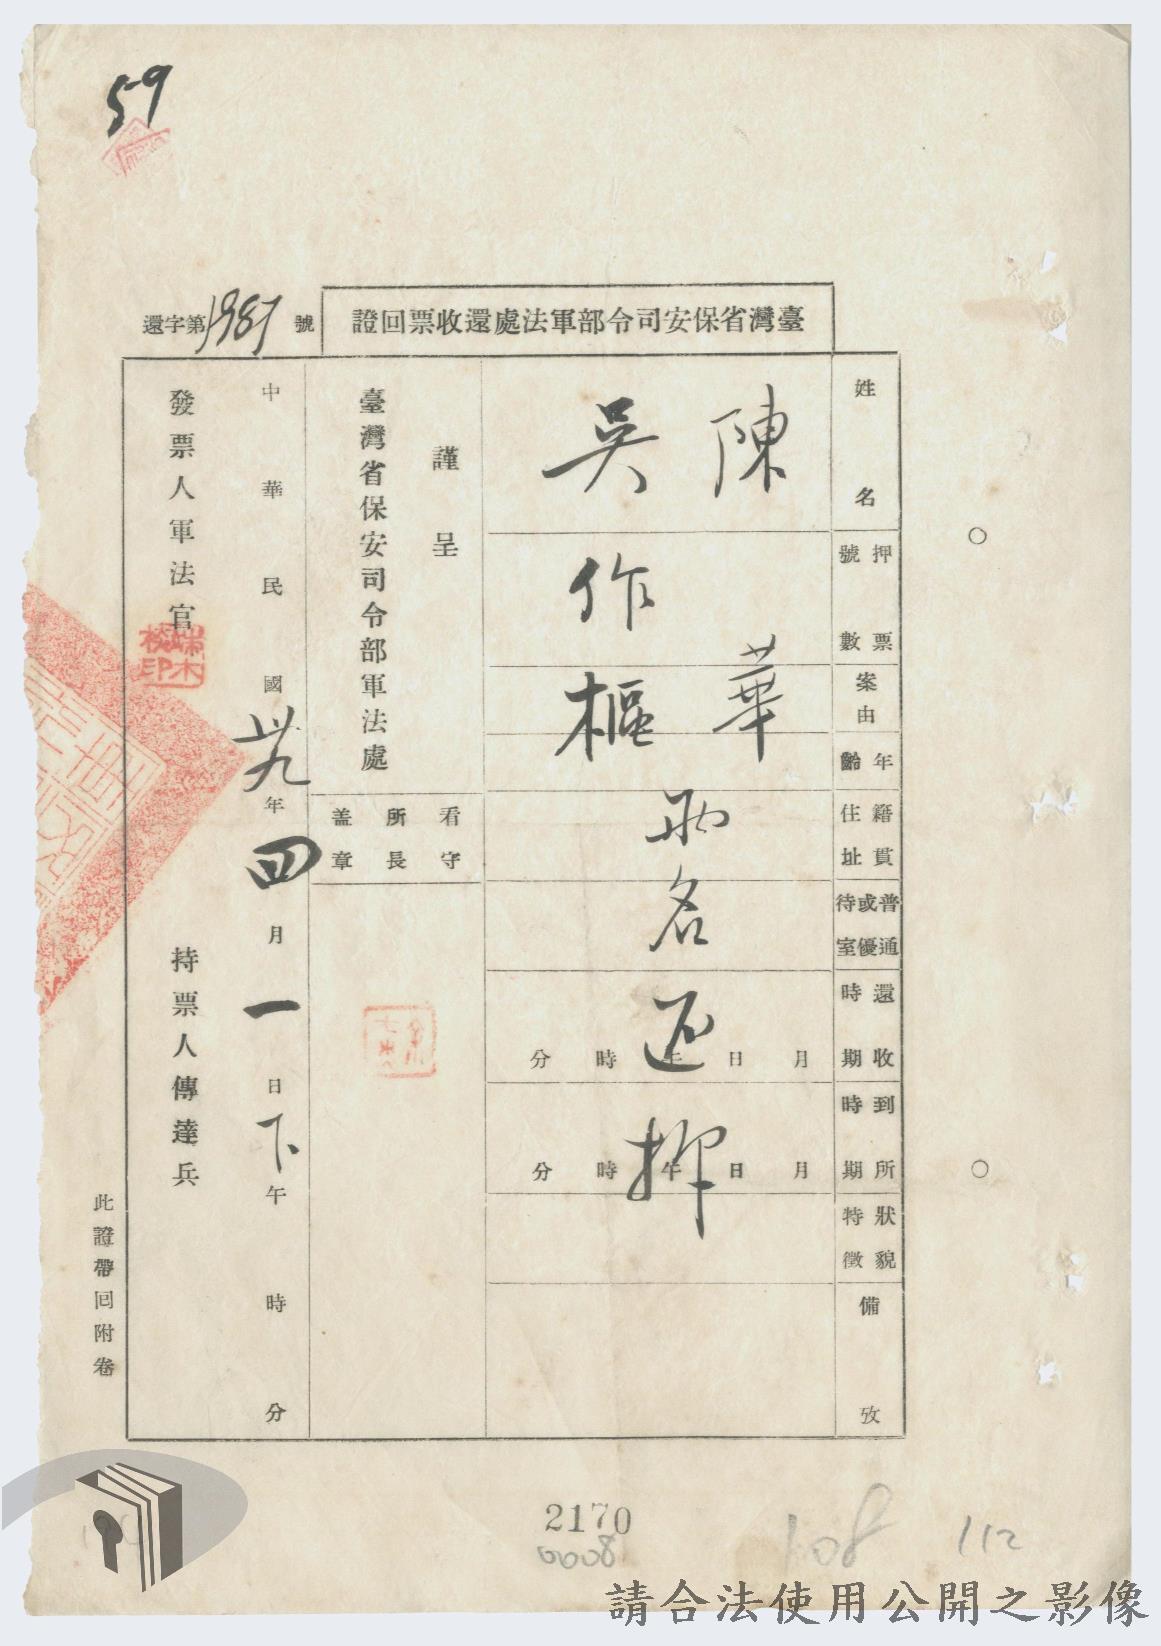 59
臺灣省保安司令部軍法處還收票回證
還字第1987號
姓名
押票號數
案由
年齡
籍貫住址
普通或優待室
還收時期
月日午時分
到所時期
月日午時分
狀貌特徵
備攷
陳華
吳作樞
兩名还押
謹呈
臺灣省保安司令部軍法處
看守所長盖章
中華民國卅九年四月一日下午時分
發票人軍法官
端木棪印
持票人傳達兵
此證帶回附卷
2170
0008
108
112
請合法使用公開之影像